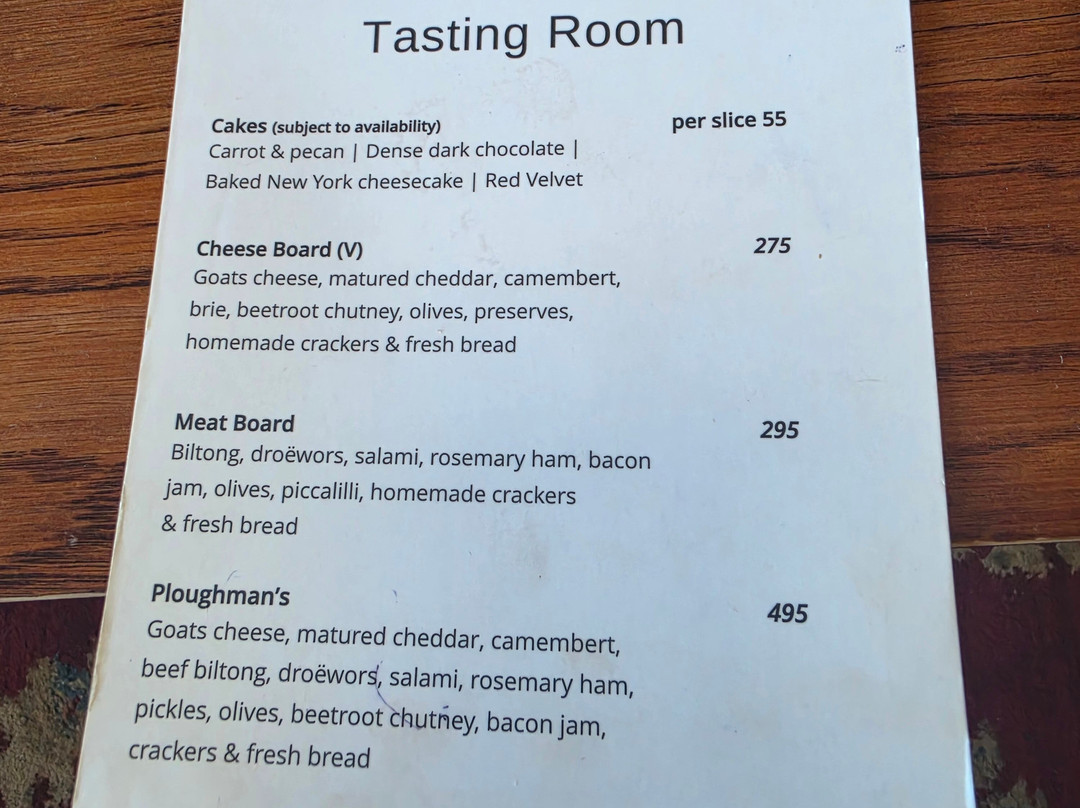 Tasting Room
Cakes (subject to availability) per slice 55
Carrot & pecan | Dense dark chocolate |
Baked New York cheesecake | Red Velvet
Cheese Board (V) 275
Goats cheese, matured cheddar, camembert,
brie, beetroot chutney, olives, preserves,
homemade crackers & fresh bread
Meat Board 295
Biltong, droëwors, salami, rosemary ham, bacon
jam, olives, piccalilli, homemade crackers
& fresh bread
Ploughman’s 495
Goats cheese, matured cheddar, camembert,
beef biltong, droëwors, salami, rosemary ham,
pickles, olives, beetroot chutney, bacon jam,
crackers & fresh bread